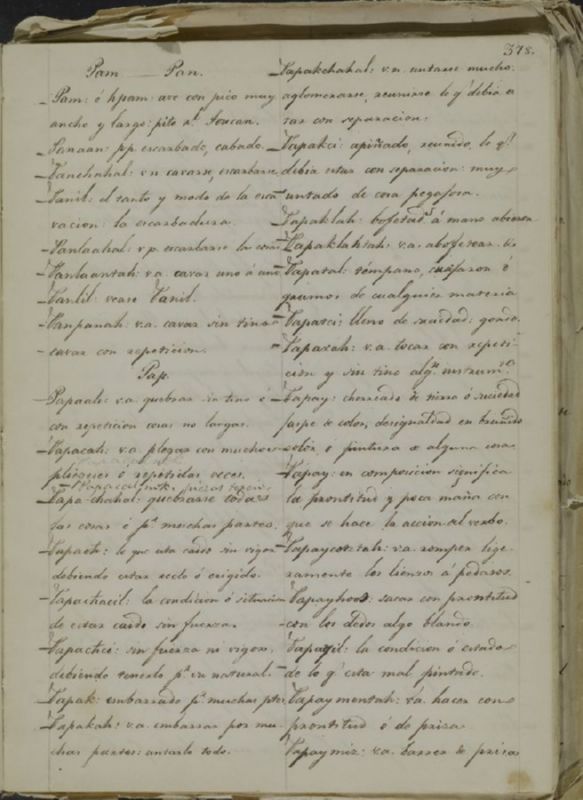 378.
Pam. — Pan.
– Pam: ó hpam: ave con pico muy
ancho y largo: pito rl. Toucan.
– Panaan: pp. escarbado, cabado.
– Panchahal: v.n. cavarse, escarbarse
– Panil: el tanto y modo de la esca
vacion: la escarbadura.
– Panlaahal: v.p. escarbarse
– Panlaantah: v.a. cavar uno á uno
– Panlil: vease Panil.
– Panpanah: v.a. cavar sin tino
– cavar con repeticion.
Pap.
– Papaah: v.a. quebrar sin tino ó
con repeticion cosas no largas.
– Papacah: v.a. plegar con muchos
pliegues ó repetidas veces.
– Papa-chahal: quebrarse todas
las cosas ó pr. muchas partes.
– Papach: lo que esta caido sin vigor
debiendo estar recto ó erigido.
– Papachacil: la condicion ó situacion
de estar caido sin fuerza.
– Papachci: sin fuerza ni vigor,
debiendo tenerlo pr. su natural.
– Papak: embarrado pr. muchas ptes
– Papakah: v.a. embarrar por mu
chas partes: untarlo todo.
– Papakchahal: v.n. untarse mucho.
aglomerarse, reunirse lo q' debia es
tar con separacion.
– Papakci: apiñado, reunido, lo q.
debia estar con separacion: muy
untado de cosa pegajosa.
– Papaklah: bofetadas á mano abierta
– Papaklahtah: v.a. abofetear.
– Papatal: témpano, cuajaron ó
grumos de cualquier materia
– Papatci: lleno de suciedad: gordo.
– Papaxah: v.a. tocar con repeti-
cion y sin tino algn. instrumto.
– Papay: chorreado de tizne ó suciedad
jaspe de color, desigualdad en
color, ó pintura de alguna cosa
– Papay: en composicion significa
la prontitud y poca maña con
que se hace la accion al verbo.
– Papaycottah: v.a. romper lige-
ramente los lienzos á pedazos.
– Papayhoos: sacar con prontitud
– con los dedos algo blando
– Papayil: la condicion ó estado
– de lo q' esta mal pintado.
– Papaymentah: v.a. hacer con
prontitud ó de prisa
– Papaymiz: v.a. barrer de prisa